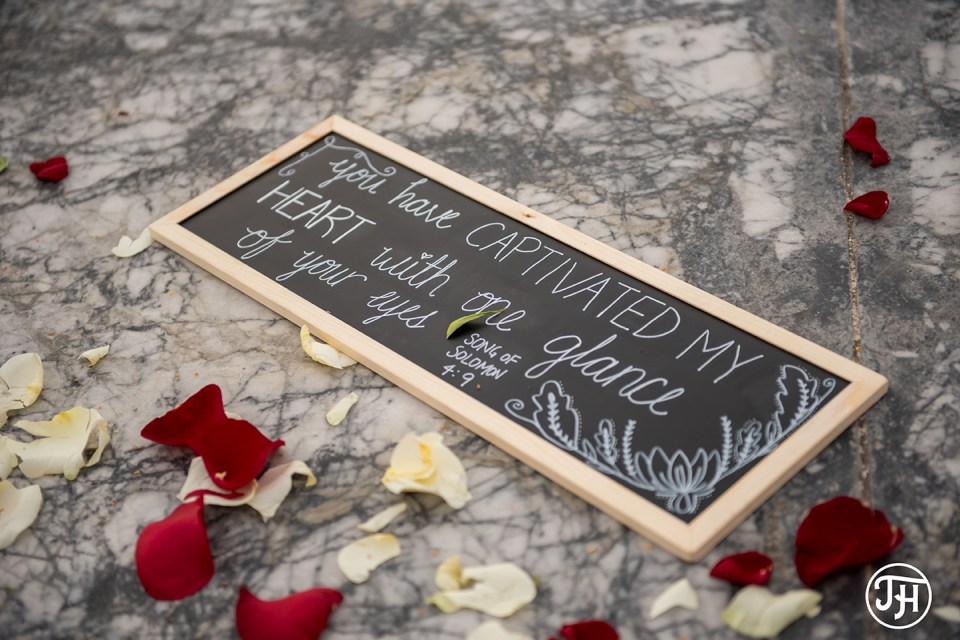 you have CAPTIVATED MY
HEART with one glance
of your eyes
SONG OF
SOLOMON
4:9
JH